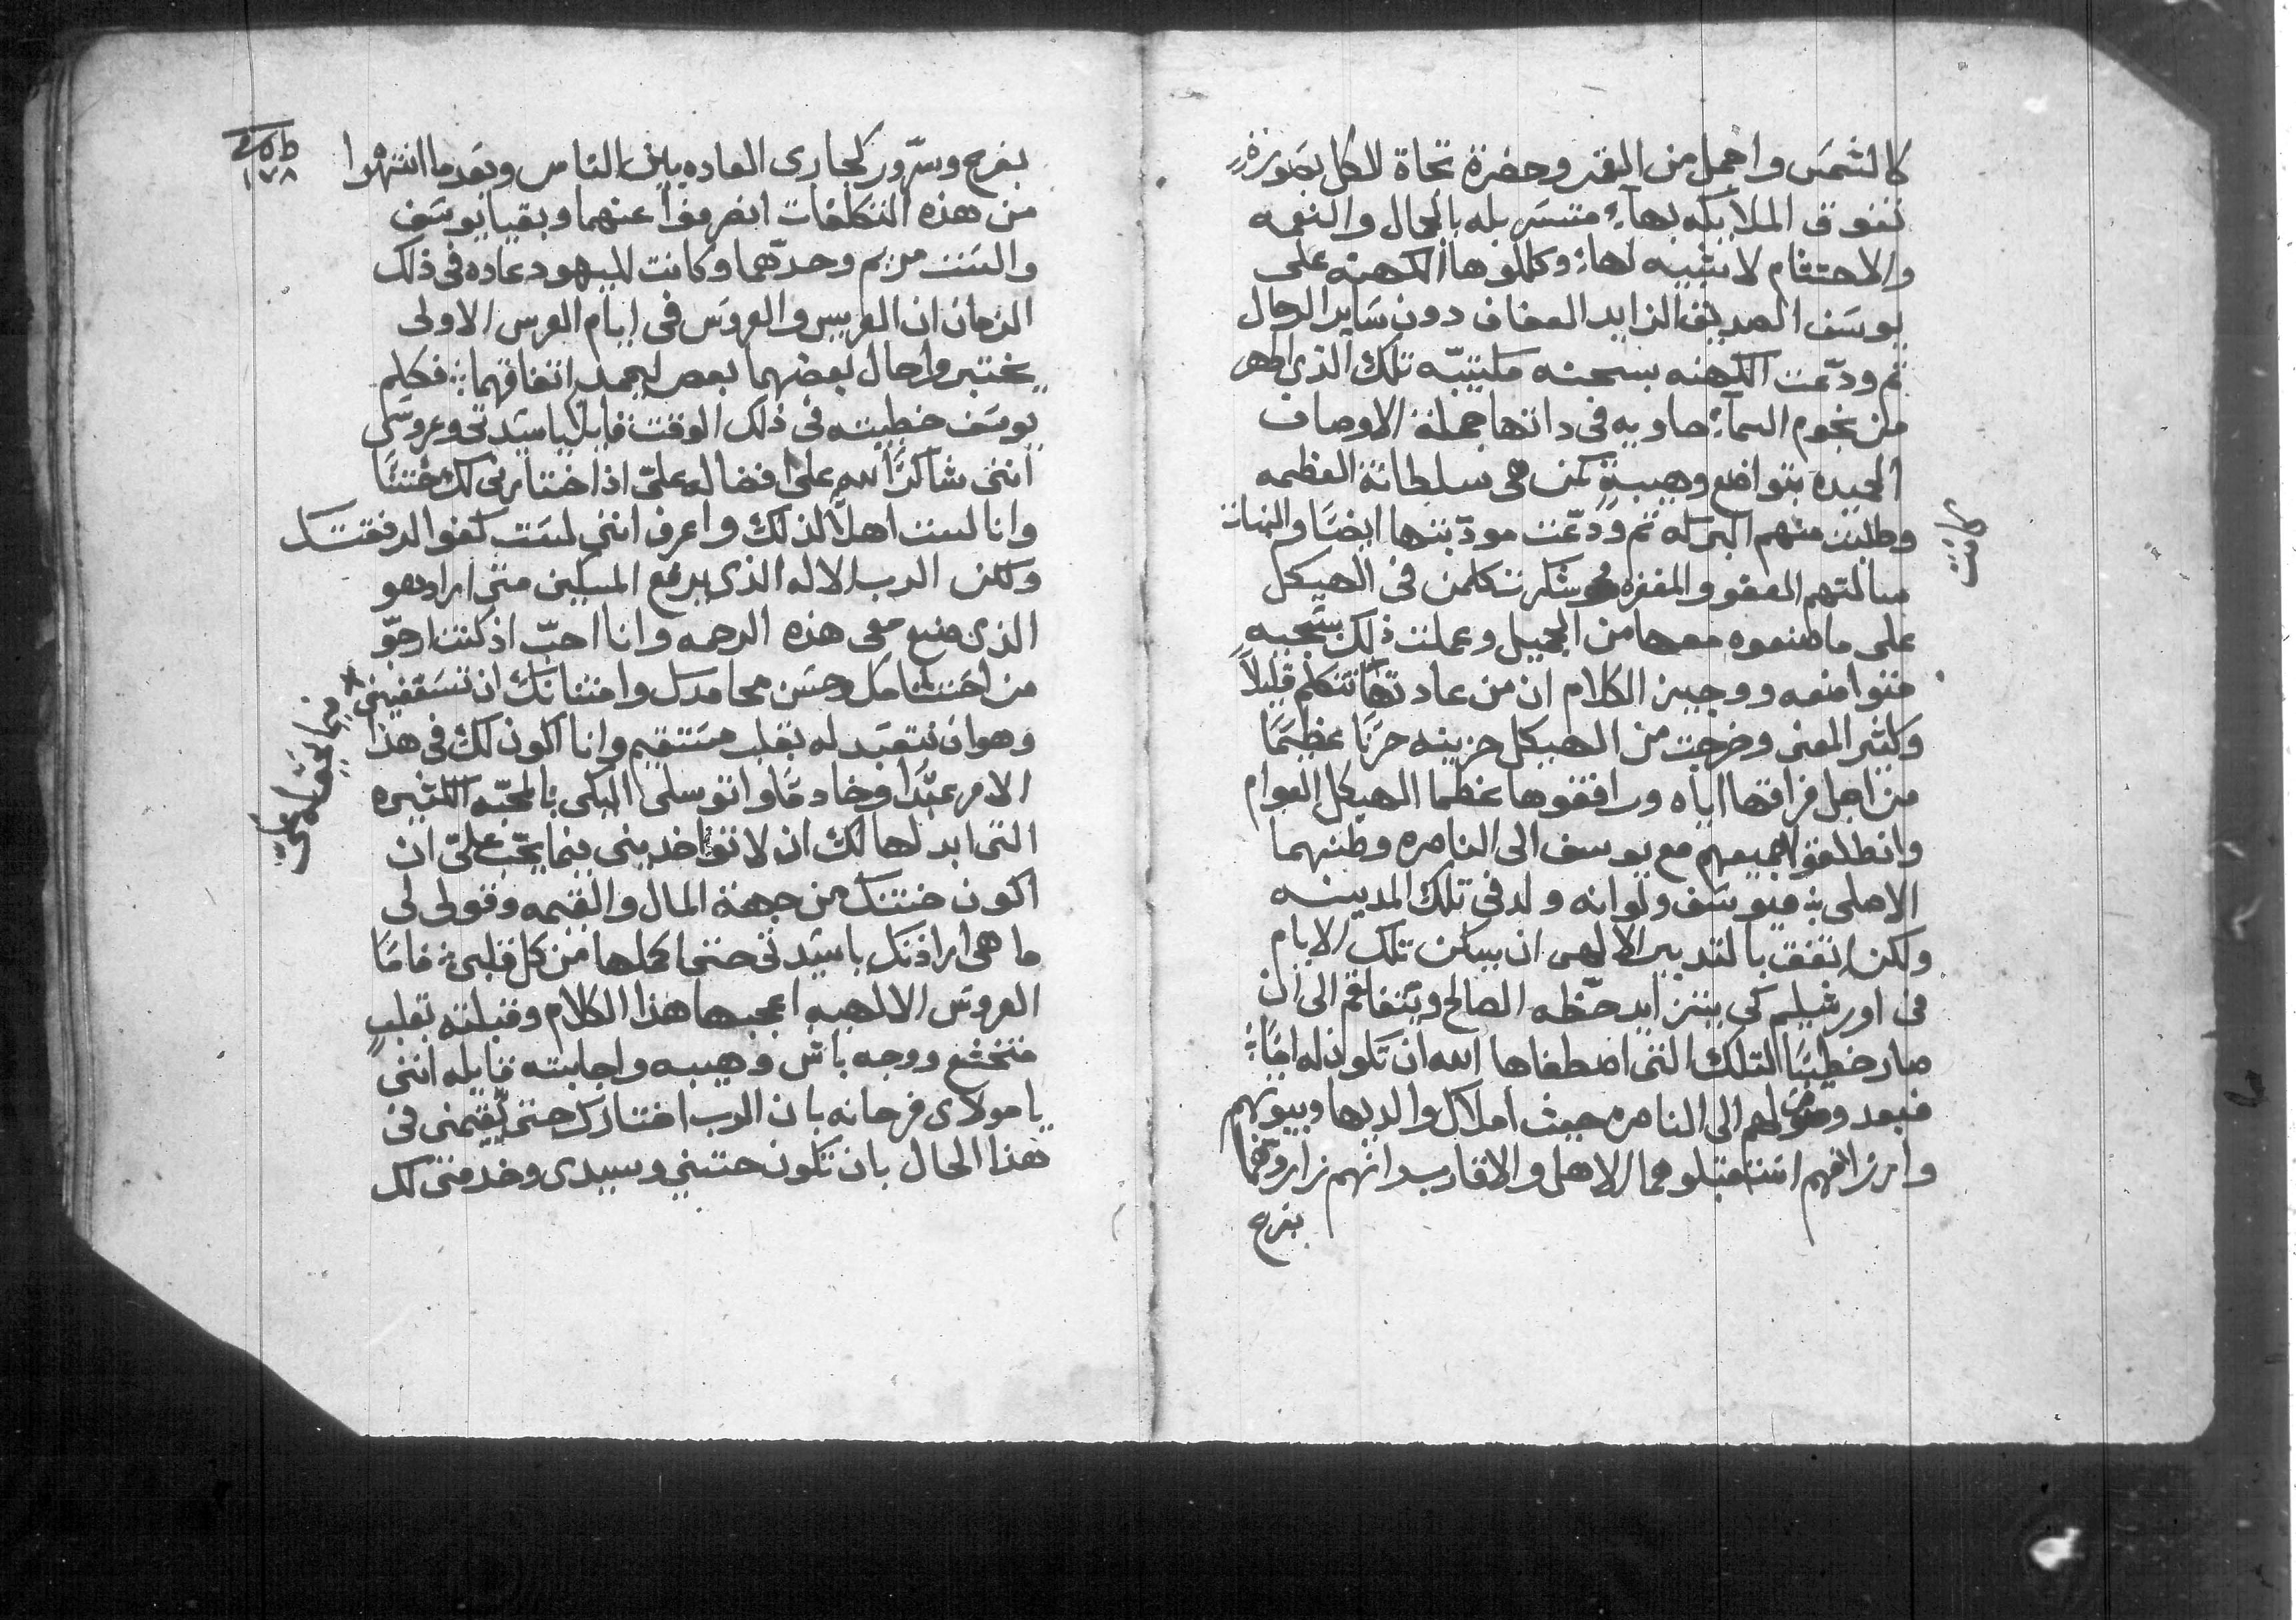 كالشمس واجمل من القمر وحضرة تجاة الكل بصورة
تفوق الملايكه بهآء متسربله بالجمال والنعمه
والاحتشام لا شبيه لها وكللوها الكهنه على
يوسف الصديق الزايد العفاف دون ساير الرجال
ثم ودّعت الكهنه بسحنه تلك الذى اطهر
من نجوم السمآء حاويه فى داتها جملة الاوصاف
الحميده بتواضع وهيبة كمن هى سلطانة العظمه
وطلبت منهم البركه ثم ودّعت مودّبتها ايضًا والبنات
سالتهم العفو والمغفره شكر تكلمن فى الهيكل
على ما صنعوه معها من الجميل وعملت ذلك
متواضعه ووجيز الكلام ان من عادتها تتكلم قليلاً
وكثير المعنى وخرجت من الهيكل حزينه حزنًا عظيمًا
من اجل فراقها اياه ورافقوها عظما الهيكل العوام
وانطلقوا جميعهم مع يوسف الى الناصره وطنهما
الاصلى فيوسف ولو انه ولد فى تلك المدينه
ولكن اتفق بالتدبير الالهى ان يسكن تلك الايام
فى اورشيلم كى يتزايد حظّه الصالح ويتفاقم الى ان
صار خطيبًا لتلك التى اصطفاها الله ان تكون له امًا
فبعد وصولهم الى الناصره حيث املاك والديها وبيوتهم
وارزاقهم استقبلوهما الاهل والاقارب وانهم زاروهما
بفرح
كانت
بفرح وسرّور كجارى العاده بين الناس وبعد ما انتهوا
من هذه التكلفات انصرفوا عنهما وبقيا يوسف
والست مريم وحدّهما وكانت لليهود عاده فى ذلك
الزمان ان العريس والعروس فى ايام العرس الاولى
يختبروا حال بعضهما بعض اتفاقهما فكلم
يوسف خطيبته فى ذلك الوقت قايلاً يا سيدتى وعروستى
اننى شاكرًا لله على افضاله علىّ اذ اختارنى لك ختنًا
وانا لست اهلاً لذلك واعرف اننى لست كفوا لرفقتك
ولكن الرب الاله الذى يرفع المسكين متى اراد هو
الذى صنع معى هذه الرحمه وانا احبّ اذ كنت ارجوّ
من احتشامك وحسن محامدك وامتنانك ان تسعفينى
وهو ان نتعبد له بقلب مستقيم وانا اكون لك فى هذا
الامر عبدًا وخادمًا واتوسل اليكى بالمحبّه الكثيره
التى ابدلها لك ان لا تواخدينى بما يجب علىّ ان
اكون ختنك من جهة المال والقيمه وقولى لى
ما هى ارادتك يا سيدتى حتى اكملها من كل قلبى فامّا
العروس الالهيه اعجبها هذا الكلام وقبلته بقلب
متخشع ووجه باش وهيبه واجابته قايله اننى
يا مولاى فرحانه بان الرب اختارك حتى يقيمنى فى
هذا الحال بان تكون ختنى وسيدى وخدمتى لك
١٧٨